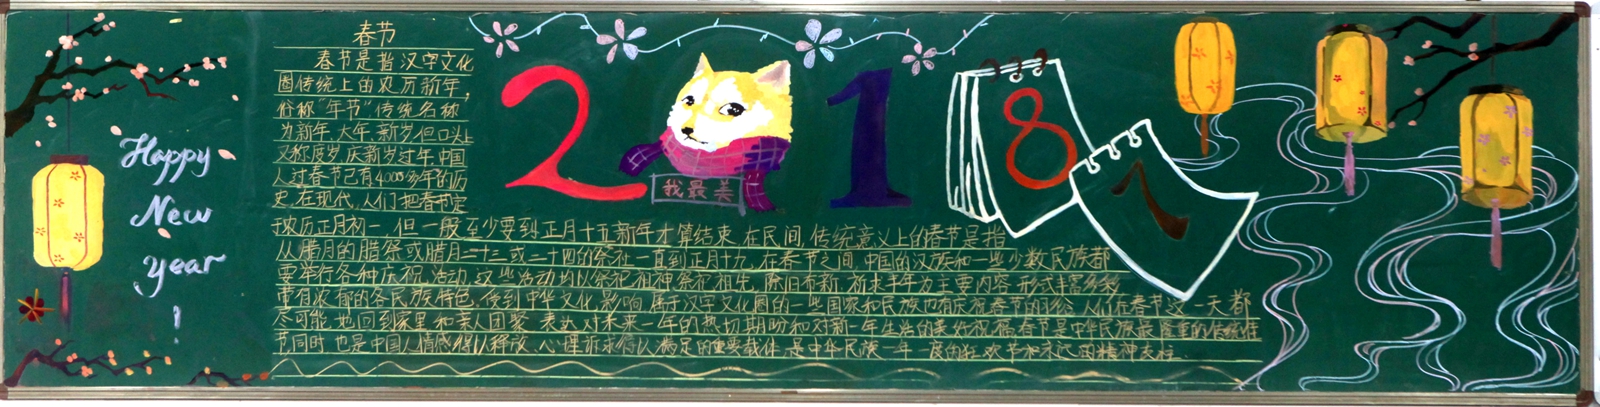 春节
春节是指汉字文化
圈传统上的农历新年,
俗称"年节"传统名称
为新年,大年,新岁但口头上
又称度岁,庆新岁过年中国
人过春节已有4000多年的历
史,在现代,人们把春节定
于农历正月初一,但一般至少要到正月十五新年才算结束,在民间,传统意义上的春节是指
从腊月的腊祭或腊月二十三或二十四的祭灶一直到正月十九,在春节之间,中国的汉族和一些少数民族都
要举行各种庆祝活动,这些活动均以祭祀祖神祭祀祖先,除旧布新,祈求丰年为主要内容,形式丰富多彩
带有浓郁的各民族特色,受到中华文化影响,属于汉字文化圈的一些国家和民族也有庆祝春节的习俗,人们在春节这一天都
尽可能地回到家里和亲人团聚,表达对未来一年的热切期盼和对新一年生活的美好祝福,春节是中华民族最隆重的传统佳
节同时也是中国人情感得以释放、心理诉求得以满足的重要载体,是中华民族一年一度的狂欢节和永远的精神支柱.
Happy
New
year
!
2 1 8
7
我最美